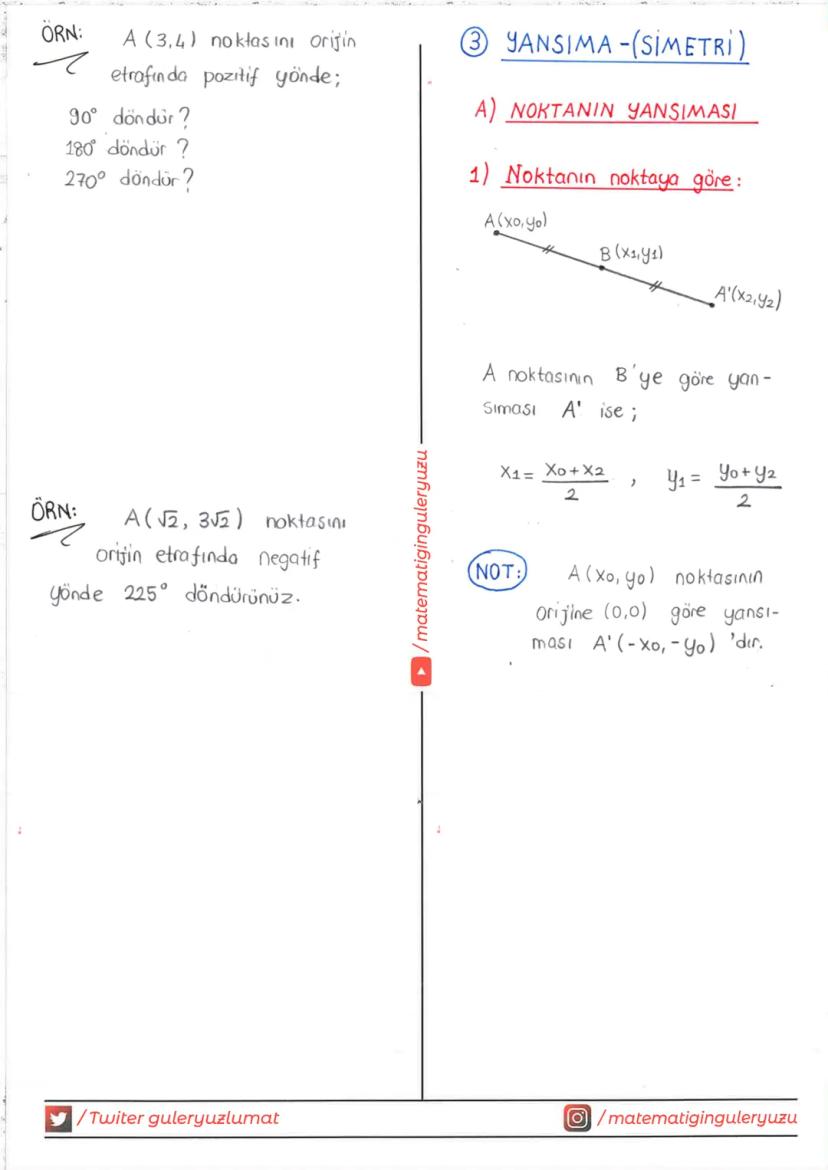 ÖRN: A(3,4) noktasını orijin
etrafında pozitif yönde;
90° döndür?
180° döndür?
270° döndür?
ÖRN: A(√2, 3√2) noktasını
orijin etrafında negatif
yönde 225° döndürünüz.
/matematiginguleryuzu
③ YANSIMA-(SİMETRİ)
A) NOKTANIN YANSIMASI
1) Noktanın noktaya göre:
A(x0,y0)
B(x1,y1)
A'(x2,y2)
A noktasının B'ye göre yan-
sıması A' ise;
x1 = (x0+x2)/2 , y1 = (y0+y2)/2
NOT: A(x0,y0) noktasının
orijine (0,0) göre yansı-
ması A'(-x0,-y0)'dır.
/Twiter guleryuzlumat
/matematiginguleryuzu